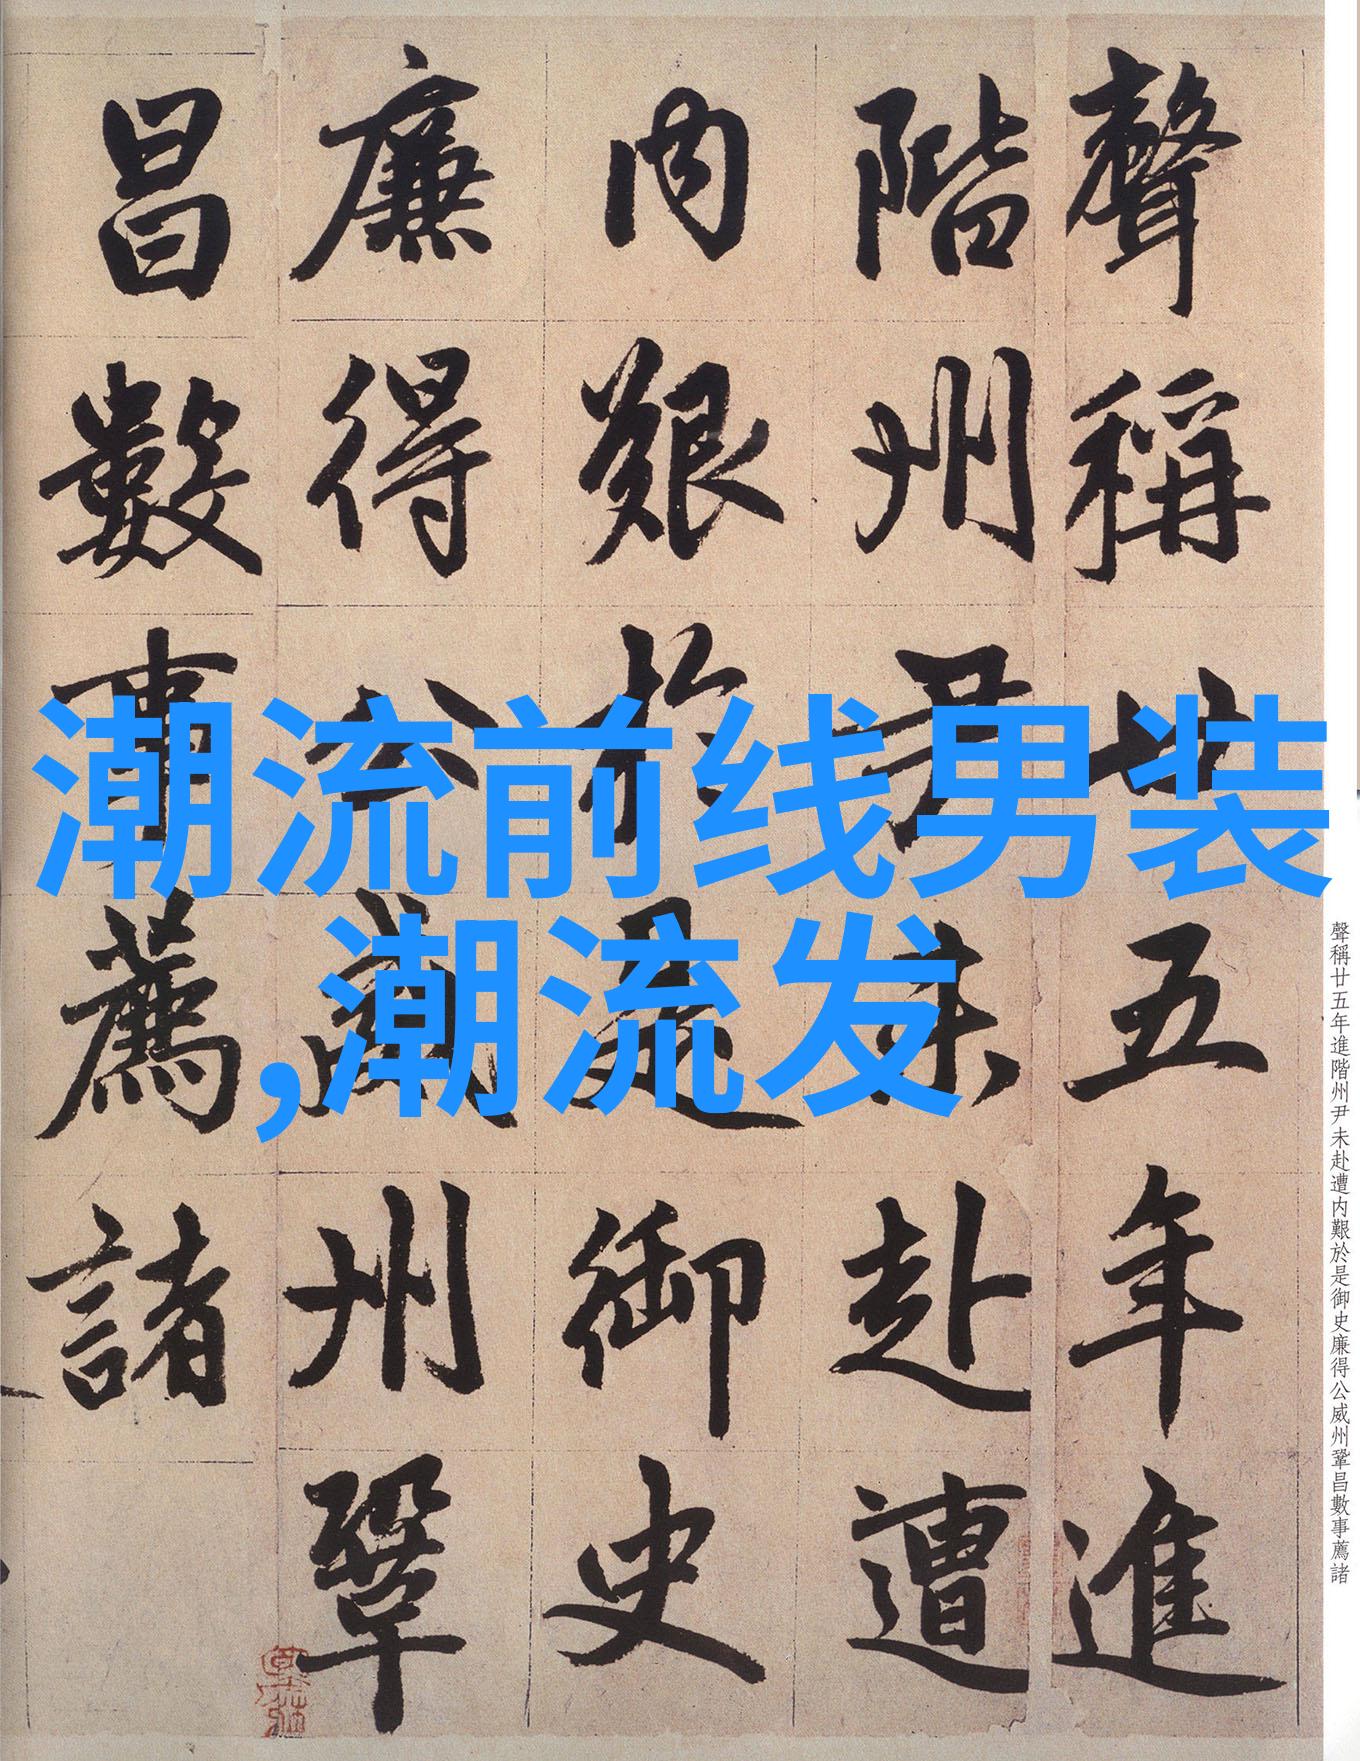 聲稱廿五年進
階州尹未赴遭
内艱於是御史
廉得公威州鞏
昌數事薦諸
潮流前线男装
,潮流发
聲稱廿五年進階州尹未赴遭内艱於是御史廉得公威州鞏昌數事薦諸